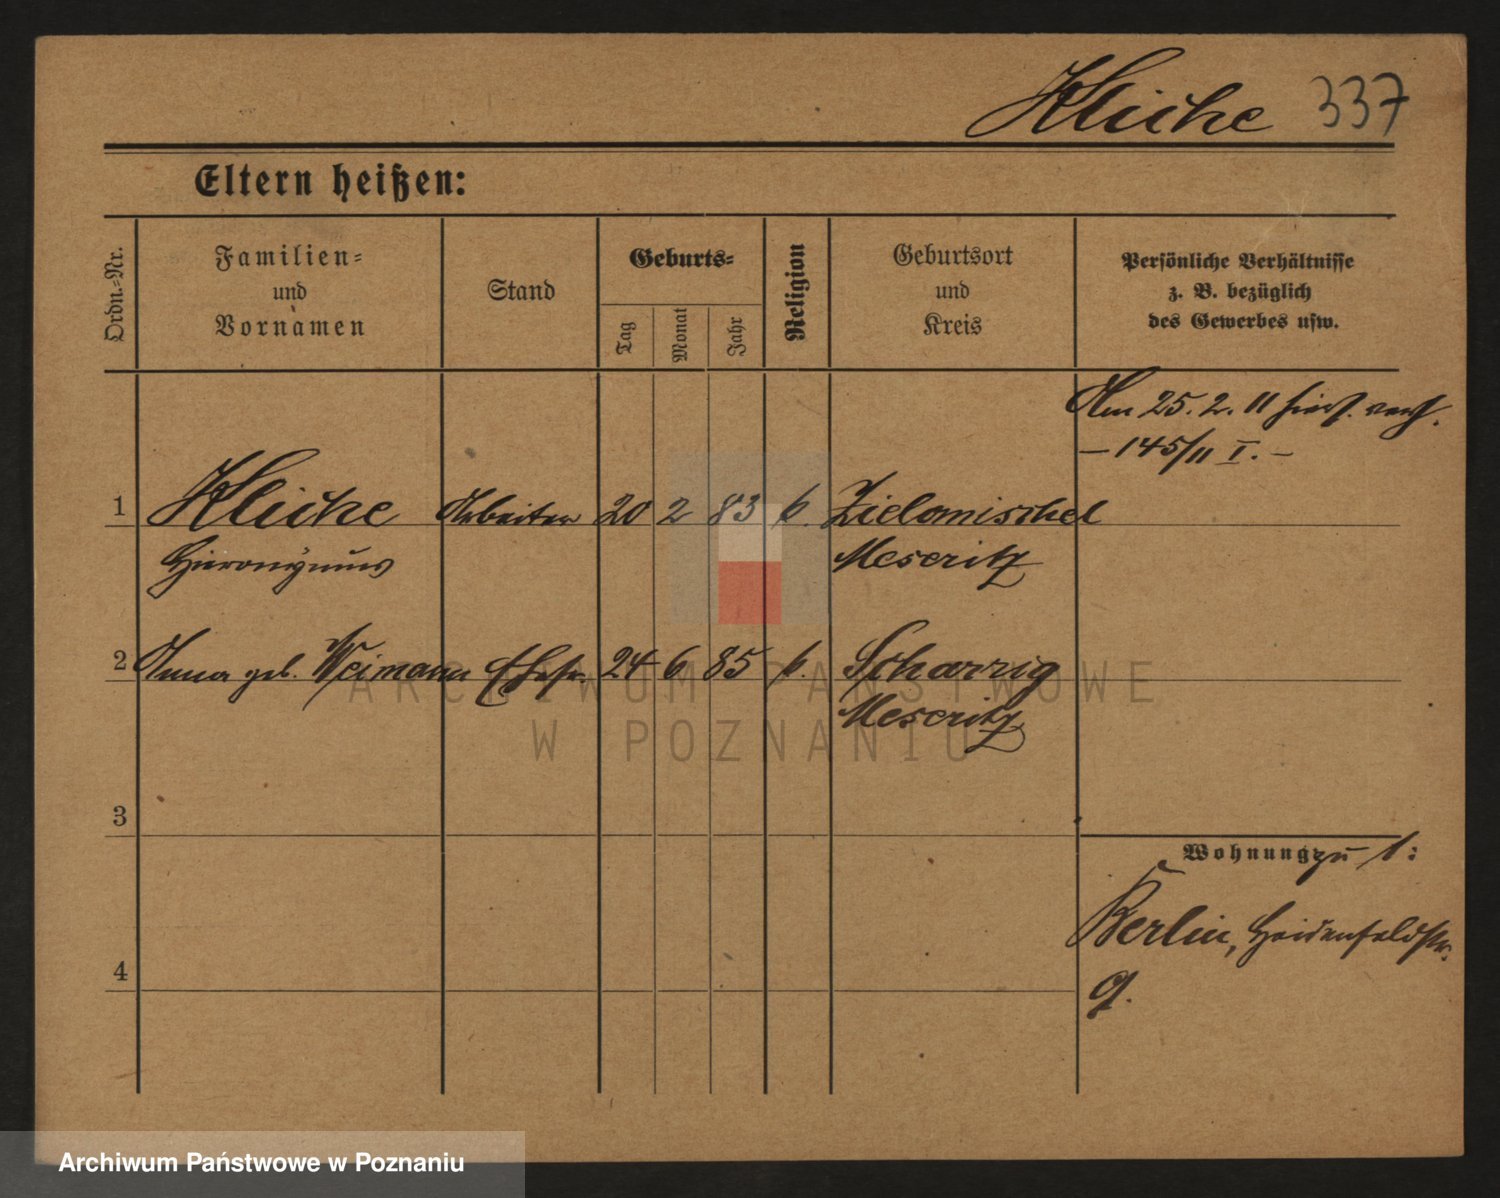 Kliche 337
Eltern heißen:
Ordn.-Nr.
Familien-
und
Vornamen
Stand
Geburts-
Tag
Monat
Jahr
Religion
Geburtsort
und
Kreis
Persönliche Verhältnisse
z. B. bezüglich
des Gewerbes usw.
Am 25. 2. 11 hies.
– 145/11 I. –
1 Kliche Arbeiter 20 2 83 k. Zielomischel
Hieronÿmus Meseritz
2 Anna geb. Weimann Ehefr. 24 6 85 k. Scharzig
Meseritz
3
Wohnung zu 1:
Berlin, Heidenfeldstr.
9.
4
ARCHIWUM PAŃSTWOWE
W POZNANIU
Archiwum Państwowe w Poznaniu